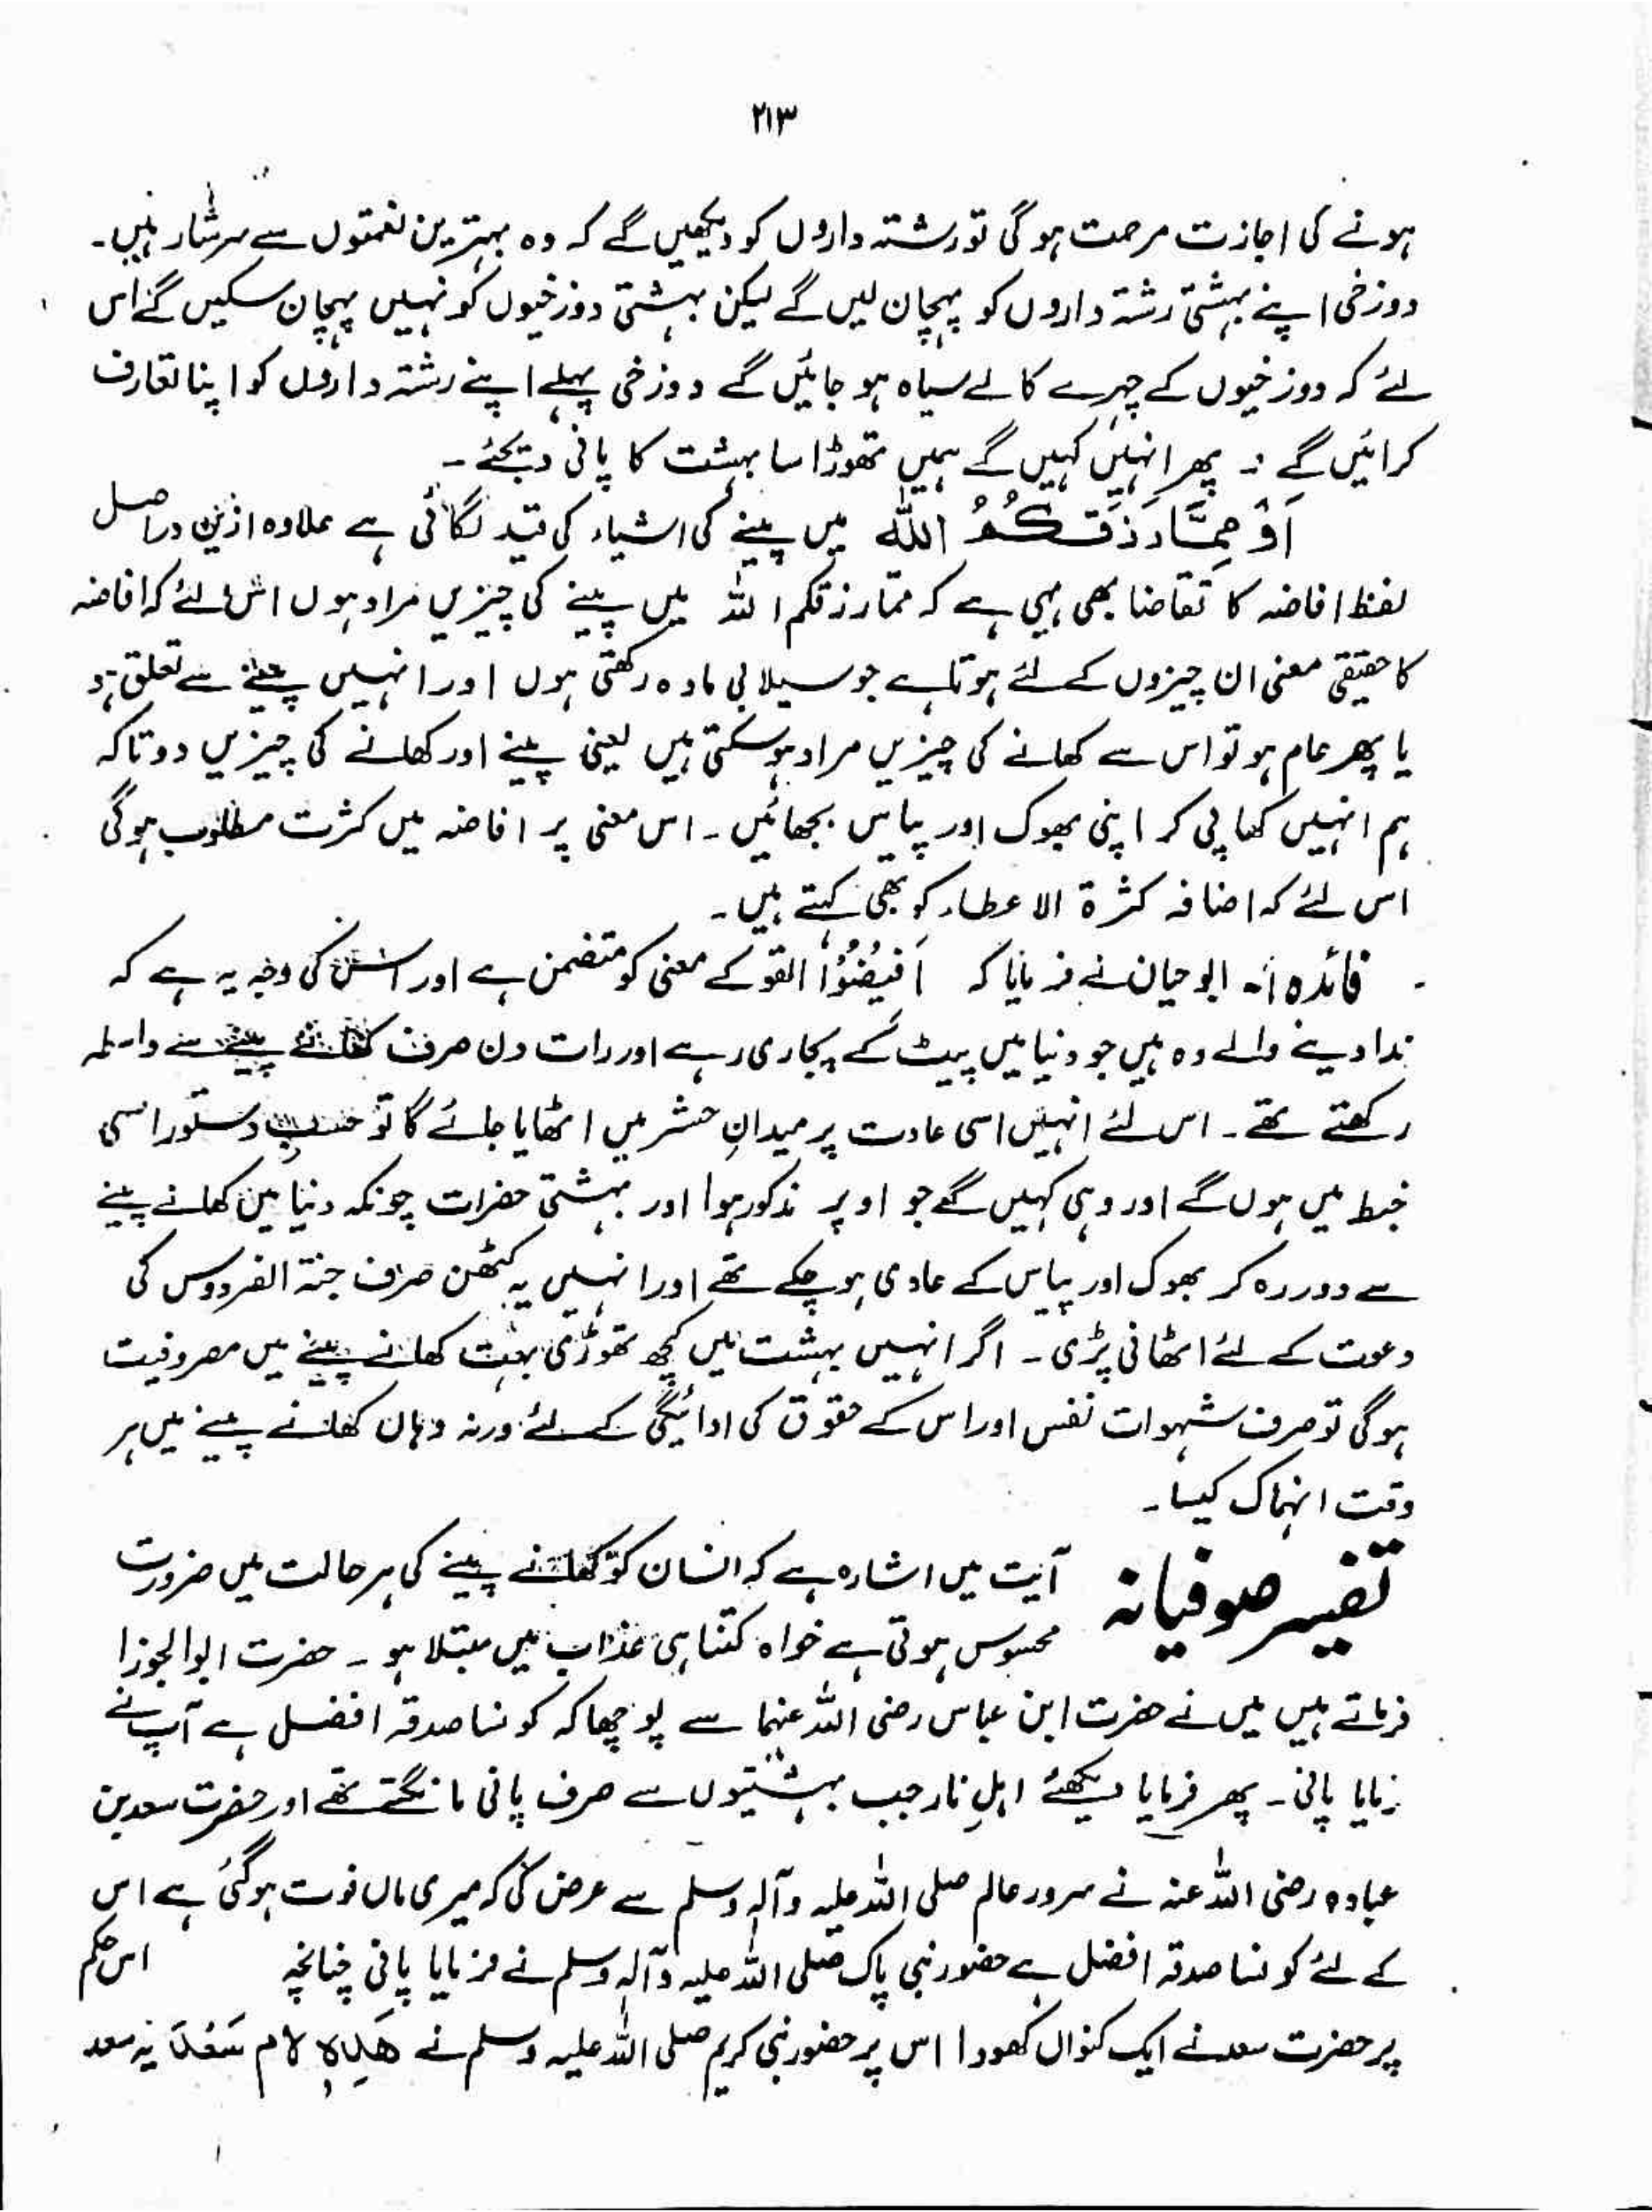 ۲۱۳
ہونے کی اجازت مرحمت ہوگی تو رشتہ داروں کو دیکھیں گے کہ وہ بہترین نعمتوں سے سرشار ہیں۔
دوزخی اپنے بہشتی رشتہ داروں کو پہچان لیں گے لیکن بہشتی دوزخیوں کو نہیں پہچان سکیں گے اس
لئے کہ دوزخیوں کے چہرے کالے سیاہ ہو جائیں گے دوزخی پہلے اپنے رشتہ داروں کو اپنا تعارف
کرائیں گے ۔ پھر انہیں کہیں گے ہمیں تھوڑا سا بہشت کا پانی دیجئے ۔
اَوْ مِمَّا رَزَقَكُمُ اللّٰہ میں پینے کی اشیاء کی قید لگائی ہے علاوہ ازیں دراصل
لفظ افاضہ کا تقاضا بھی یہی ہے کہ ممّا رزقکم اللہ میں پینے کی چیزیں مراد ہوں اس لئے کہ افاضہ
کا حقیقی معنی ان چیزوں کے لئے ہوتا ہے جو سیلابی مادہ رکھتی ہوں اور انہیں پینے سے تعلق ہو
یا پھر عام ہو تو اس سے کھانے کی چیزیں مراد ہو سکتی ہیں یعنی پینے اور کھانے کی چیزیں دو تاکہ
ہم انہیں کھا پی کر اپنی بھوک اور پیاس بجھائیں ۔ اس معنی پر افاضہ میں کثرت مطلوب ہوگی
اس لئے کہ اضافہ کثرۃ الاعطاء کو بھی کہتے ہیں ۔
فائدہ :۔ ابو حیان نے فرمایا کہ اَفِیْضُوْا القو کے معنی کو متضمن ہے اور اس کی وجہ یہ ہے کہ
ندا دینے والے وہ ہیں جو دنیا میں پیٹ کے پجاری رہے اور رات دن صرف کھانے پینے سے واسطہ
رکھتے تھے ۔ اس لئے انہیں اسی عادت پر میدانِ حشر میں اٹھایا جائے گا تو حسبِ دستور اسی
خبط میں ہوں گے اور وہی کہیں گے جو اوپر مذکور ہوا اور بہشتی حضرات چونکہ دنیا میں کھانے پینے
سے دور رہ کر بھوک اور پیاس کے عادی ہو چکے تھے اور انہیں یہ کٹھن صرف جنۃ الفردوس کی
دعوت کے لئے اٹھانی پڑی ۔ اگر انہیں بہشت میں کچھ تھوڑی بہت کھانے پینے میں مصروفیت
ہوگی تو صرف شہوات نفس اور اس کے حقوق کی ادائیگی کے لئے ورنہ وہاں کھانے پینے میں ہر
وقت انہماک کیسا ۔
تفسیر صوفیانہ آیت میں اشارہ ہے کہ انسان کو کھانے پینے کی ہر حالت میں ضرورت
محسوس ہوتی ہے خواہ کتنا ہی عذاب میں مبتلا ہو ۔ حضرت ابوالجوزا
فرماتے ہیں میں نے حضرت ابن عباس رضی اللہ عنہما سے پوچھا کہ کونسا صدقہ افضل ہے آپ نے
فرمایا پانی ۔ پھر فرمایا دیکھئے اہلِ نار جب بہشتیوں سے صرف پانی مانگتے تھے اور حضرت سعد بن
عبادہ رضی اللہ عنہ نے سرور عالم صلی اللہ علیہ وآلہ وسلم سے عرض کی کہ میری ماں فوت ہوگئی ہے اس
کے لئے کونسا صدقہ افضل ہے حضور نبی پاک صلی اللہ علیہ وآلہ وسلم نے فرمایا پانی چنانچہ اس حکم
پر حضرت سعد نے ایک کنواں کھودا اس پر حضور نبی کریم صلی اللہ علیہ وسلم نے ھٰذِہٖ لام سَعْد یہ سعد